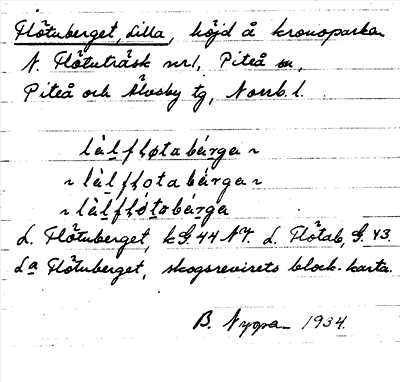 Flötuberget, Lilla, höjd å kronoparken
N. Flötuträsk nr 1, Piteå sn,
Piteå och Älvsby tg, Norrb. l.
làlflǫtabárga ~
~ làlflǫtabárga ~
~ làlflǫ́tabárga
L. Flötuberget, kG.44 NV. L. Flötab, G. 43.
La Flötuberget, skogsrevirets block-karta.
B. Nygren 1934.